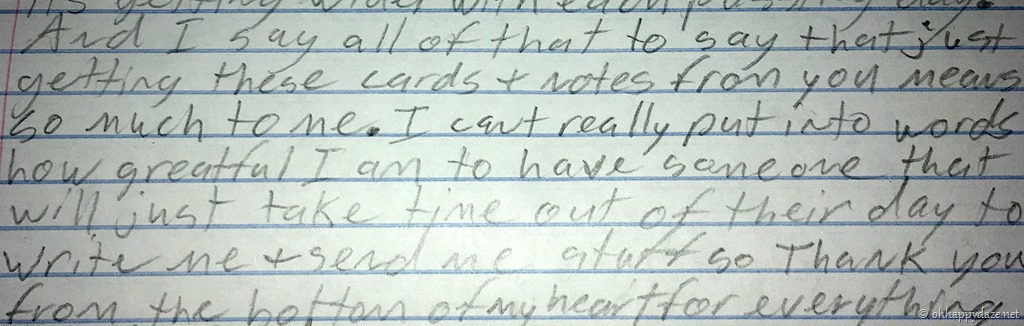 its getting wider with each passing day.
And I say all of that to say that just
getting these cards + notes from you means
so much to me. I cant really put into words
how greatful I am to have someone that
will just take time out of their day to
write me + send me stuff so Thank you
from the bottom of my heart for everything
© okhappydaze.net